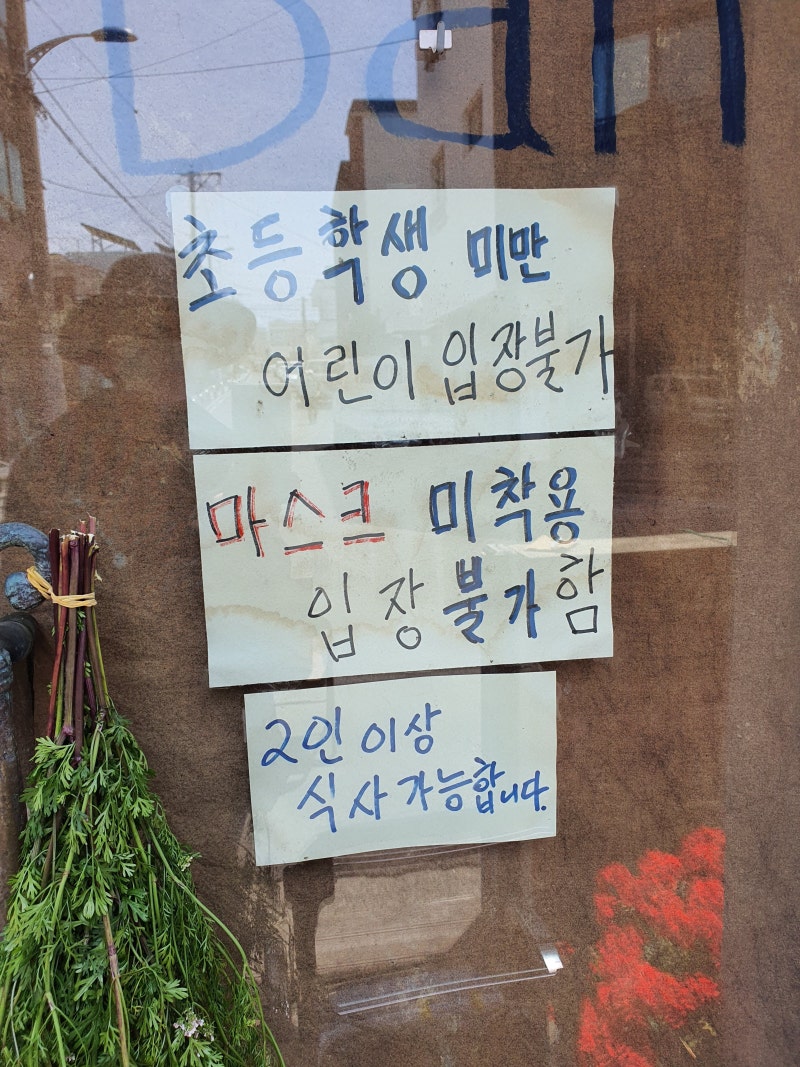 Ban
초등학생 미만
어린이 입장불가
마스크 미착용
입장 불가함
2인 이상
식사 가능합니다.